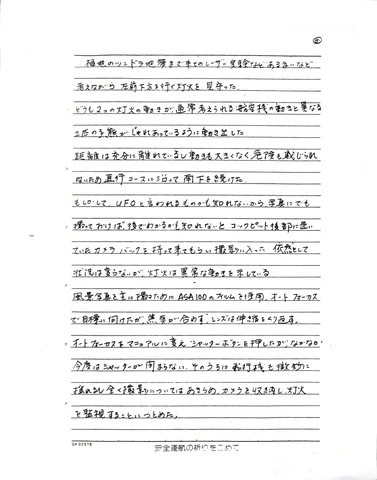 ②
極地のツンドラ地帯まで来てのレーザー実験などあるまいなど
考えながら 左前下方を行く灯火を 見守った。
どうも2つの灯火の動きが 通常考えられる航空機の動きと異なる
2匹の子熊が じゃれあっているように動き出した
距離は充分に離れているし動きも大きくなく危険も感じられ
ないため 飛行コースに沿って 南下を続けた。
もしかして、UFOと言われるものかも知れないから 写真にでも
撮っておけば 後でわかるかも知れないと コックピット後部に置い
ていたカメラバックを持って来てもらい 撮影に入った 依然として
状況は変らないが、灯火は異常な動きを示している
風景写真を主に撮るために ASA100のフィルムを使用、オートフォーカス
で目標に向けたが、焦点が合わず、レンズは伸び縮みをくり返す。
オートフォーカスをマニュアルに変え シャッターボタンを押したが、なかなか
今度はシャッターが閉まらない。そのうちに 飛行機も微妙に
揺れ出し 全く撮影についてはあきらめ、カメラを収納し、灯火
を監視することにつとめた。
安全運航の祈りをこめて